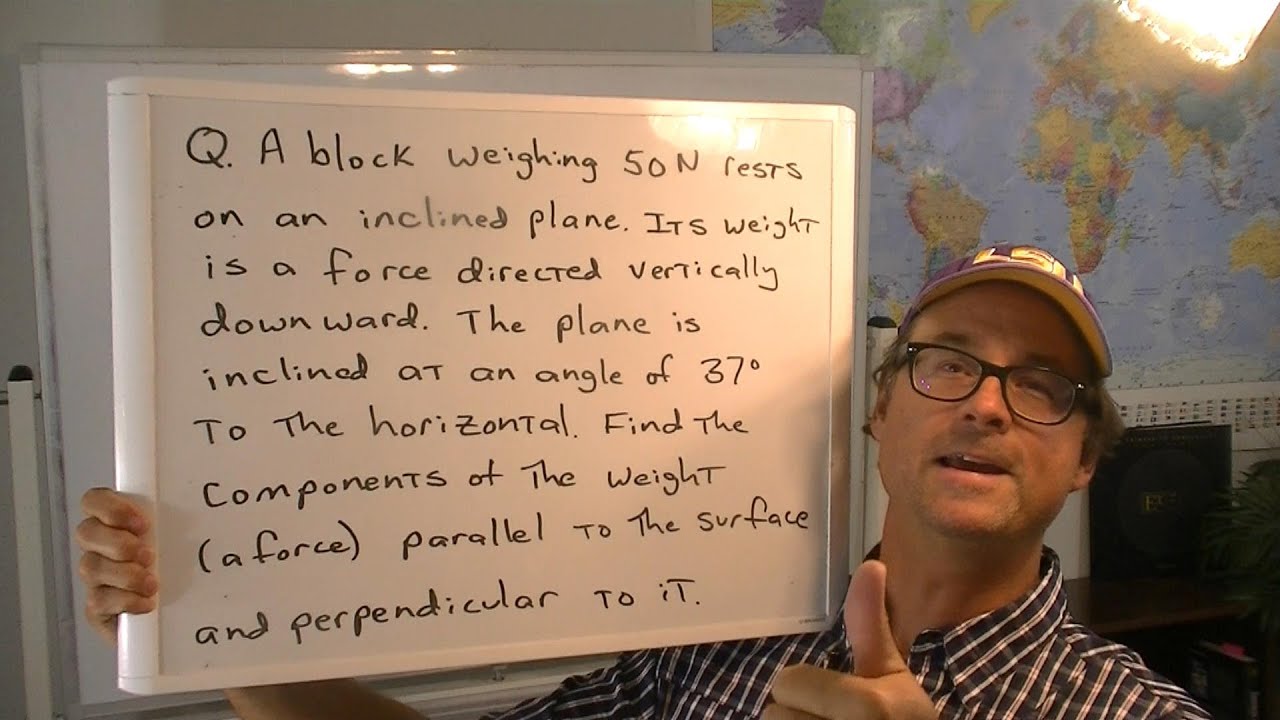 Q. A block weighing 50N rests
on an inclined plane. Its weight
is a force directed vertically
downward. The plane is
inclined at an angle of 37°
To The horizontal. Find The
Components of The weight
(a force) parallel to The surface
and perpendicular to it.
LSU